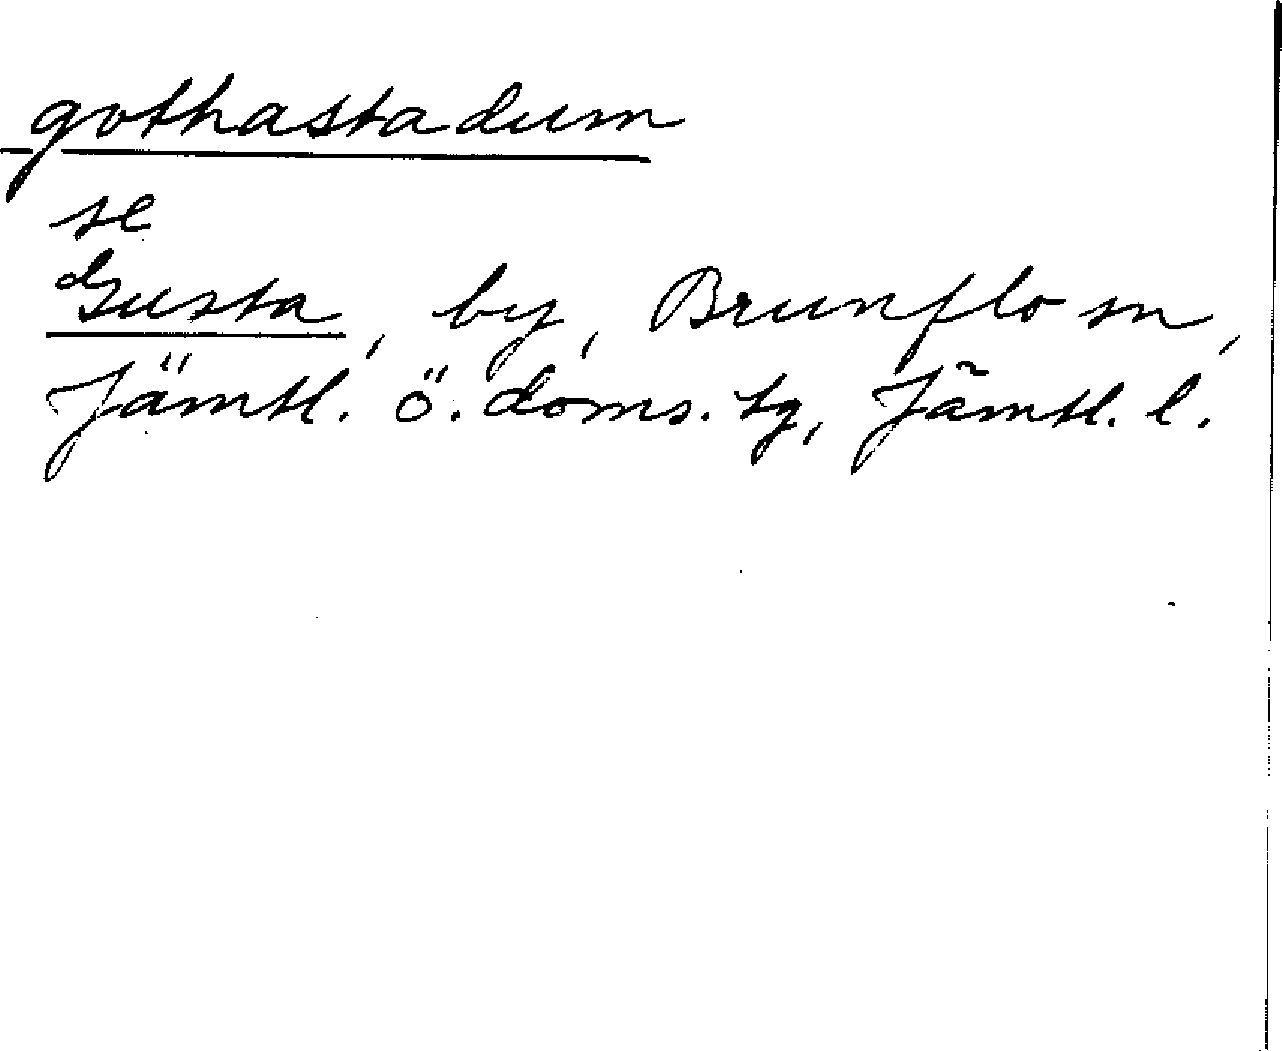 gothastadum
se
Gusta, by, Brunflo sn,
Jämtl. ö. doms. tg, Jämtl. l.